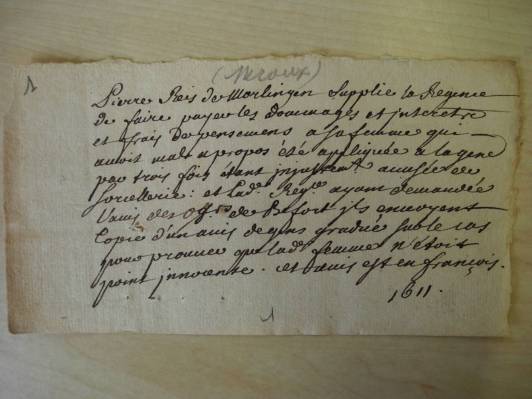 (Meroux)
1
Pierre Reis de Morlingen Supplie la Regence
de faire payer les Dommages et interetre
et frais de pensemens a sa femme qui
avoit mal a propos été appliquée a la gene
par trois fois étant injustem.t accusée de
Sorcellerie : et lad. Reg.ce ayant demandée
l'avis des Off.rs de Befort ils envoyent
Copie d'un avis de gens gradué sur le cas
pour prouver que lad. femme n'étoit
point innocente. cet avis est en françois.
1611.
1